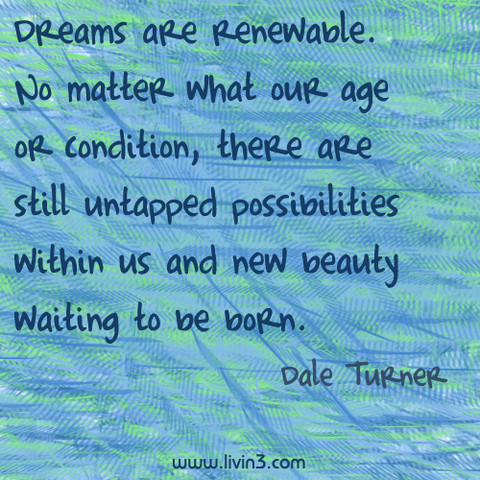 Dreams are renewable.
No matter what our age
or condition, there are
still untapped possibilities
within us and new beauty
waiting to be born.
Dale Turner
www.livin3.com